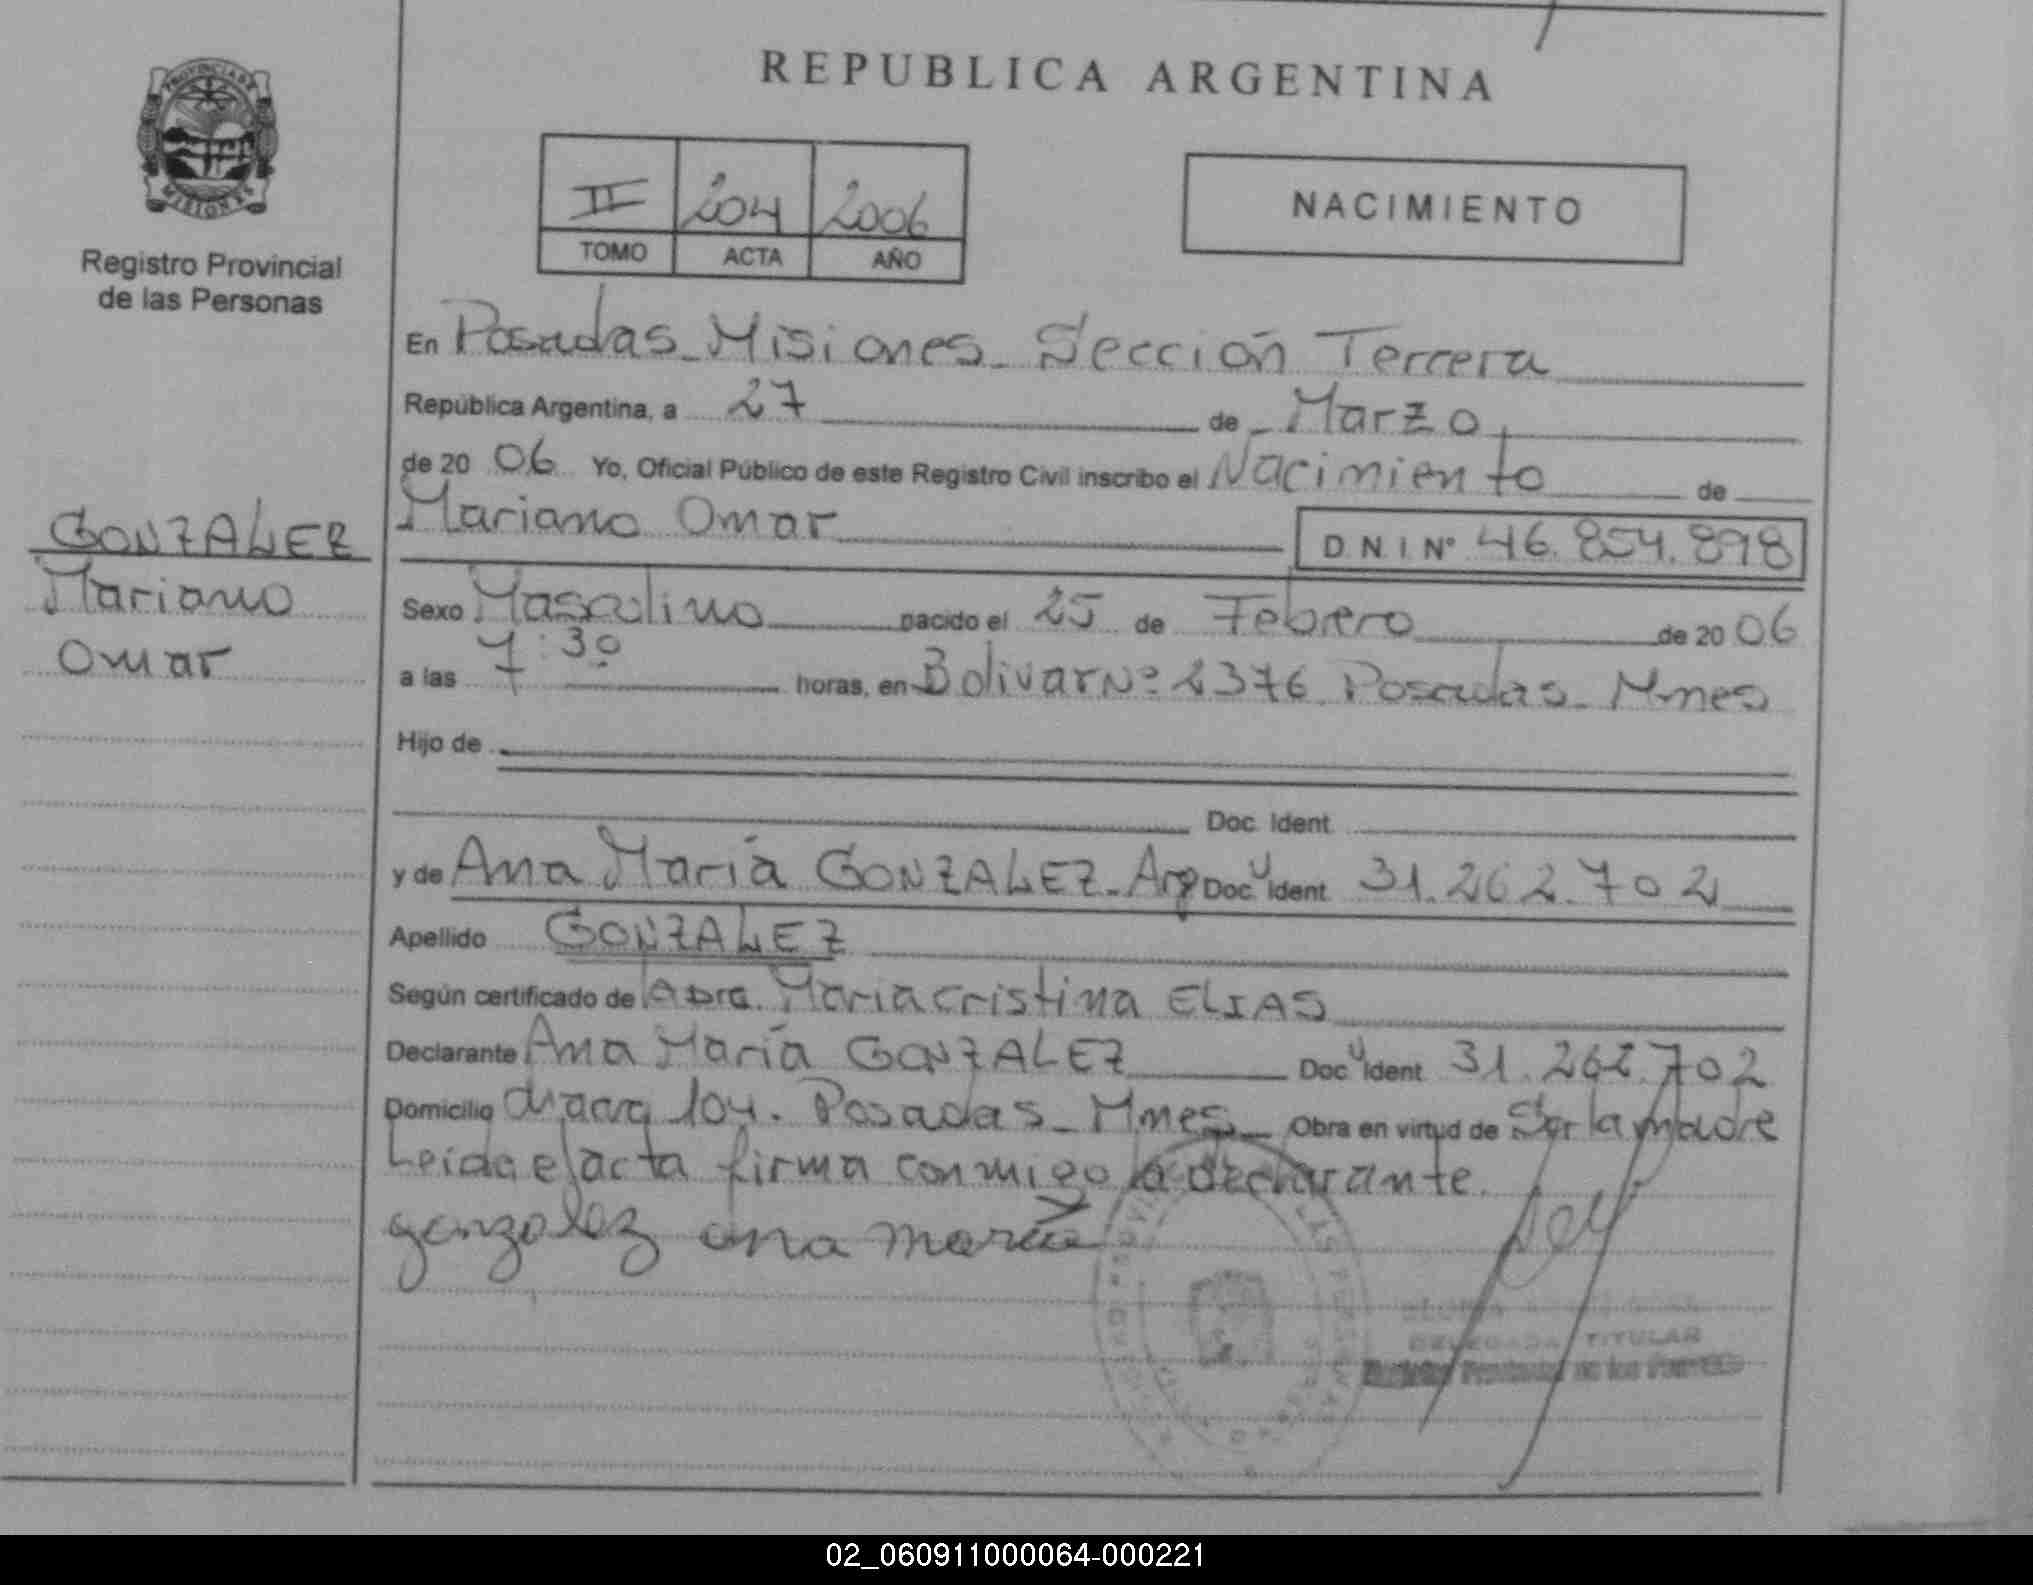 REPUBLICA ARGENTINA
PROVINCIA DE
MISIONES
Registro Provincial
de las Personas
II 204 2006
TOMO ACTA AÑO
NACIMIENTO
GONZALEZ
Mariano
Omar
En Posadas - Misiones - Sección Tercera
República Argentina, a 27 de Marzo
de 20 06 Yo, Oficial Público de este Registro Civil inscribo el Nacimiento de
Mariano Omar D N I Nº 46.854.898
Sexo Masculino nacido el 25 de Febrero de 20 06
a las 7:30 horas, en Bolivar Nº 2376 Posadas - Mnes
Hijo de
Doc. Ident.
y de Ana María GONZALEZ - Arg Doc. U Ident. 31.262.702
Apellido GONZALEZ
Según certificado de la Dra. Maria Cristina ELIAS
Declarante Ana María GONZALEZ Doc U Ident. 31.262.702
Domicilio chacra 104. Posadas - Mnes - Obra en virtud de Ser la madre
Leida el acta firma conmigo la declarante.
gonzalez ana maria
DELEGADA TITULAR
Registro Provincial de las Personas
02_060911000064-000221